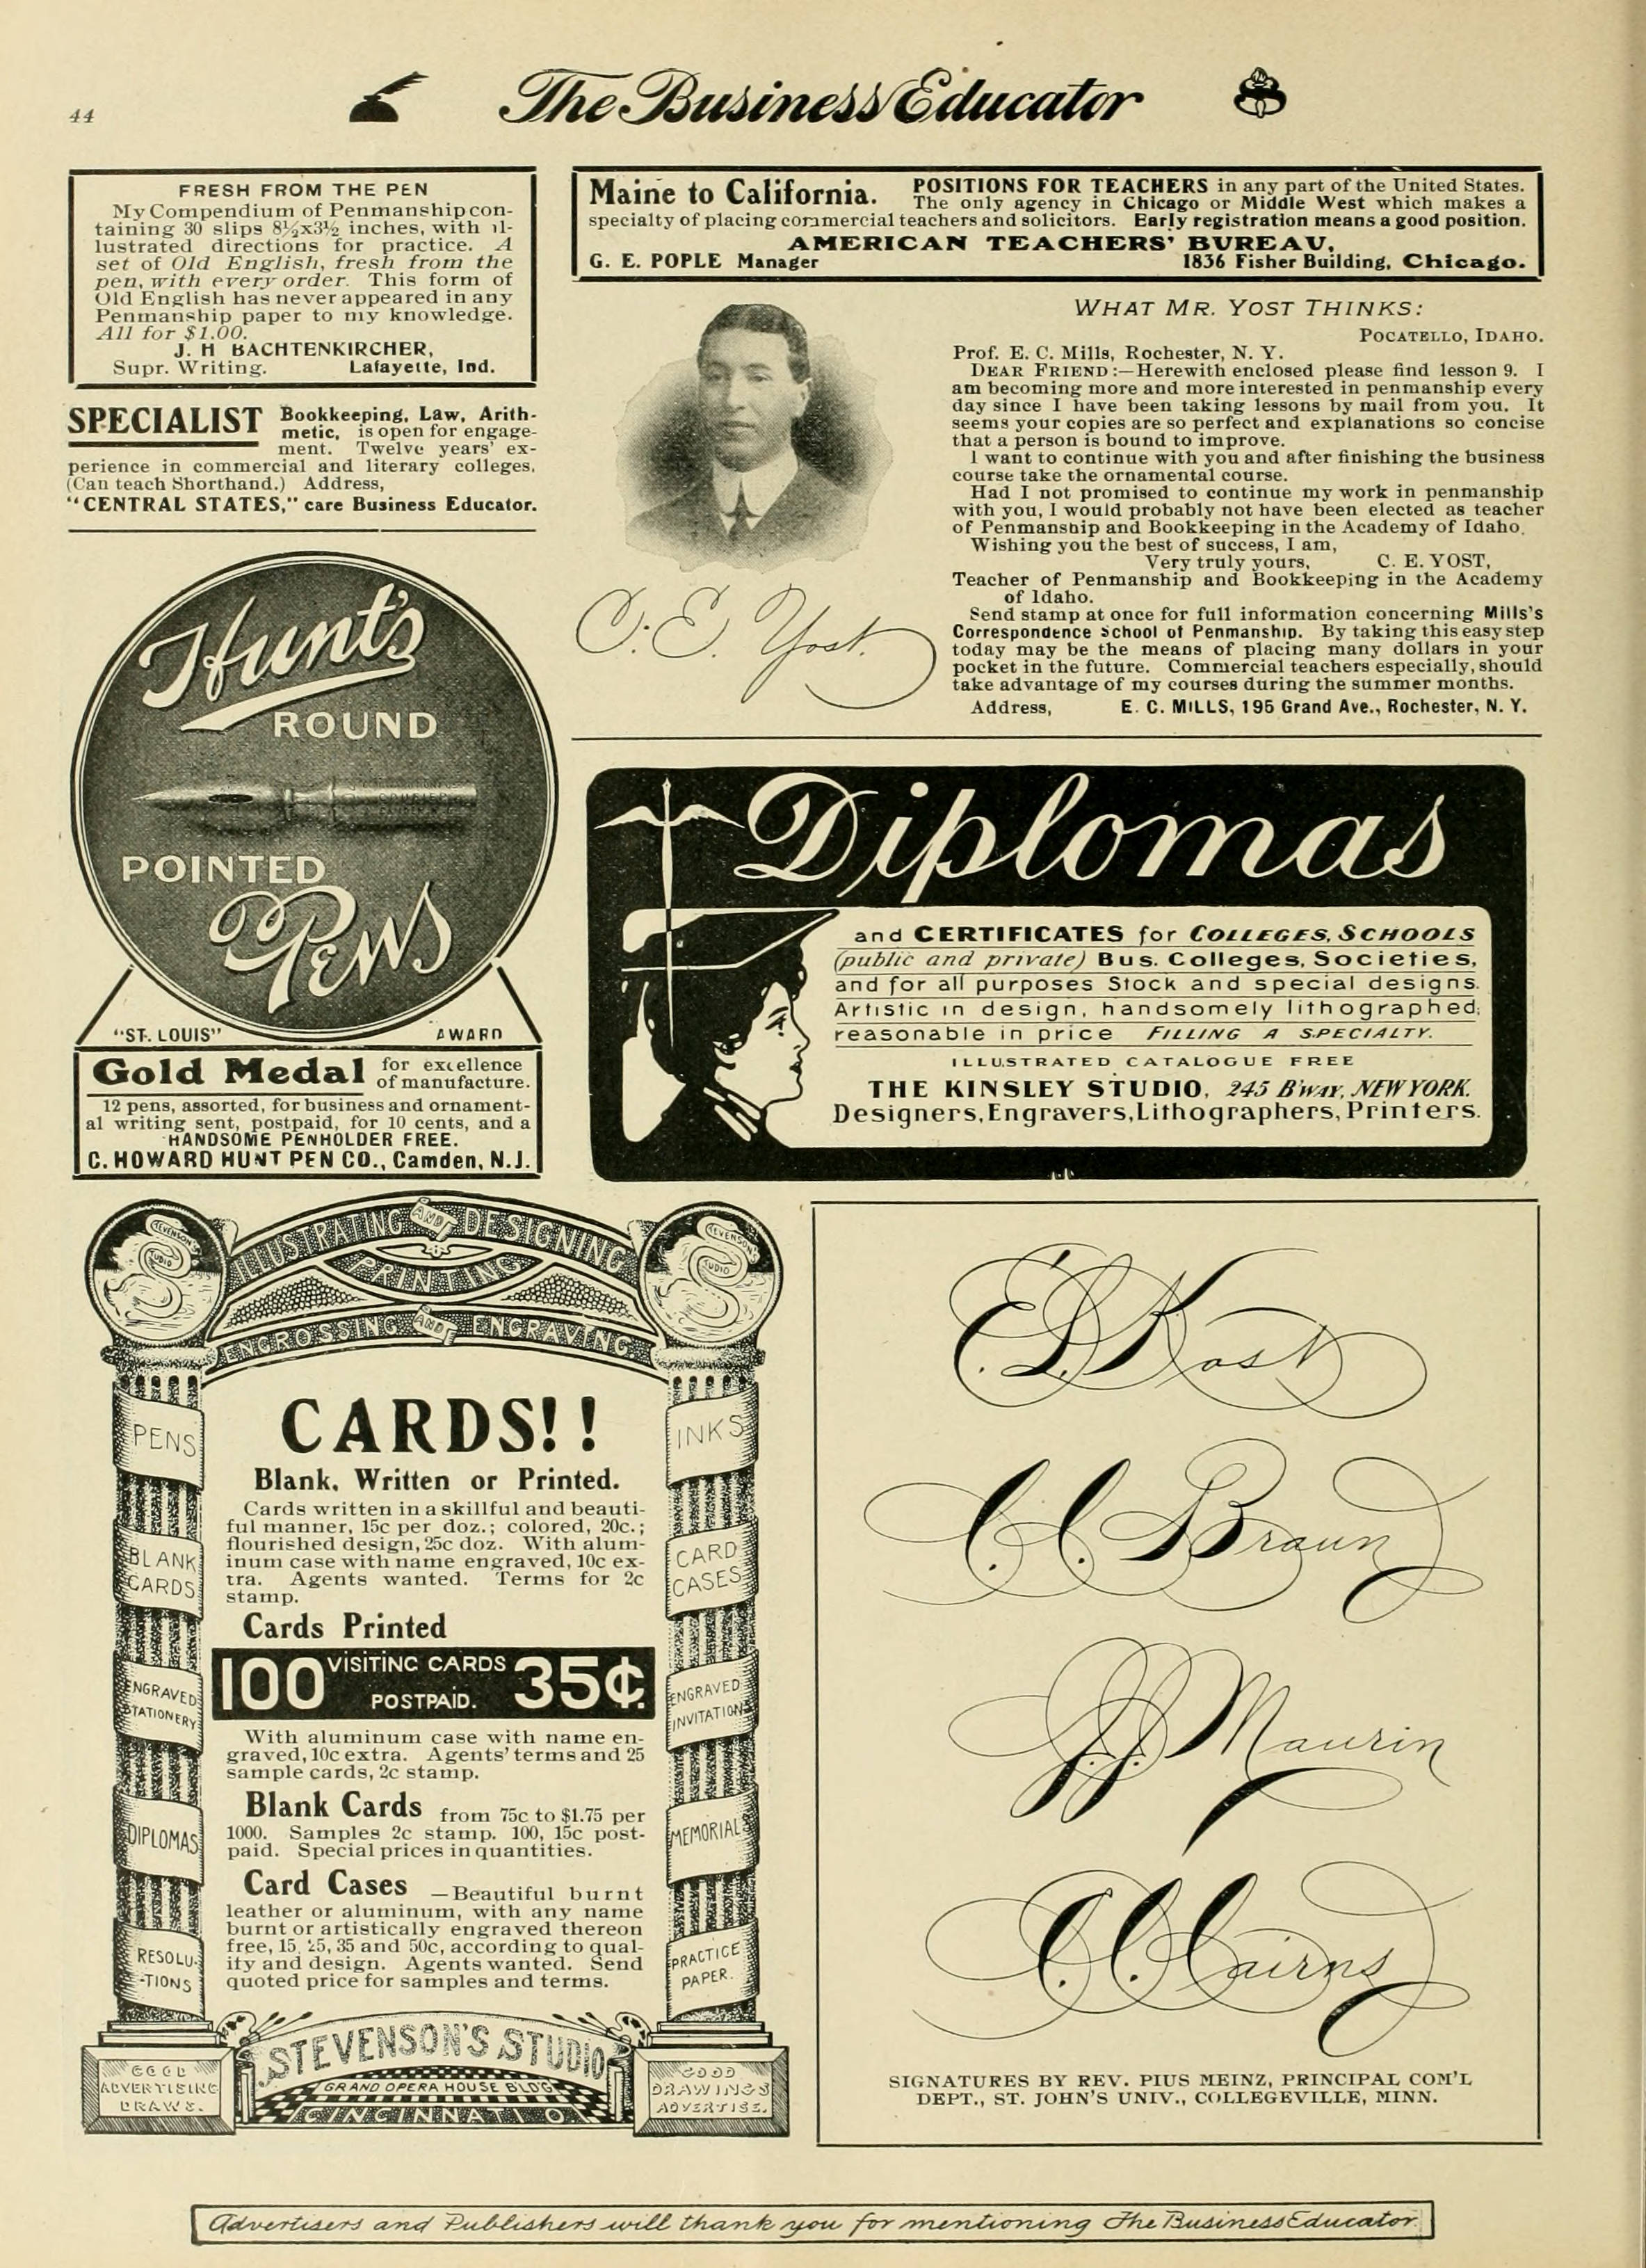 44
The Business Educator
FRESH FROM THE PEN
My Compendium of Penmanship con-
taining 30 slips 8½x3½ inches, with il-
lustrated directions for practice. A
set of Old English, fresh from the
pen, with every order. This form of
Old English has never appeared in any
Penmanship paper to my knowledge.
All for $1.00.
J. H BACHTENKIRCHER,
Supr. Writing. Lafayette, Ind.
SPECIALIST Bookkeeping, Law, Arith-
metic, is open for engage-
ment. Twelve years' ex-
perience in commercial and literary colleges,
(Can teach Shorthand.) Address,
"CENTRAL STATES," care Business Educator.
Hunt's
ROUND
POINTED
PENS
"ST. LOUIS" AWARD
Gold Medal for excellence
of manufacture.
12 pens, assorted, for business and ornament-
al writing sent, postpaid, for 10 cents, and a
HANDSOME PENHOLDER FREE.
C. HOWARD HUNT PEN CO., Camden, N.J.
Maine to California. POSITIONS FOR TEACHERS in any part of the United States.
The only agency in Chicago or Middle West which makes a
specialty of placing commercial teachers and solicitors. Early registration means a good position.
AMERICAN TEACHERS' BUREAU,
G. E. POPLE Manager 1836 Fisher Building, Chicago.
C. E. Yost.
WHAT MR. YOST THINKS:
POCATELLO, IDAHO.
Prof. E. C. Mills, Rochester, N. Y.
DEAR FRIEND:—Herewith enclosed please find lesson 9. I
am becoming more and more interested in penmanship every
day since I have been taking lessons by mail from you. It
seems your copies are so perfect and explanations so concise
that a person is bound to improve.
I want to continue with you and after finishing the business
course take the ornamental course.
Had I not promised to continue my work in penmanship
with you, I would probably not have been elected as teacher
of Penmanship and Bookkeeping in the Academy of Idaho.
Wishing you the best of success, I am,
Very truly yours, C. E. YOST,
Teacher of Penmanship and Bookkeeping in the Academy
of Idaho.
Send stamp at once for full information concerning Mills's
Correspondence School of Penmanship. By taking this easy step
today may be the means of placing many dollars in your
pocket in the future. Commercial teachers especially, should
take advantage of my courses during the summer months.
Address, E. C. MILLS, 195 Grand Ave., Rochester, N. Y.
Diplomas
and CERTIFICATES for COLLEGES, SCHOOLS
(public and private) Bus. Colleges, Societies,
and for all purposes Stock and special designs.
Artistic in design, handsomely lithographed;
reasonable in price FILLING A SPECIALTY.
ILLUSTRATED CATALOGUE FREE
THE KINSLEY STUDIO, 245 B'WAY, NEW YORK.
Designers, Engravers, Lithographers, Printers.
STEVENSON'S STUDIO
STEVENSON'S STUDIO
ILLUSTRATING AND DESIGNING
PRINTING
ENGROSSING AND ENGRAVING
PENS
BLANK
CARDS
ENGRAVED
STATIONERY
DIPLOMAS
RESOLU-
-TIONS
CARDS!!
Blank, Written or Printed.
Cards written in a skillful and beauti-
ful manner, 15c per doz.; colored, 20c.;
flourished design, 25c doz. With alum-
inum case with name engraved, 10c ex-
tra. Agents wanted. Terms for 2c
stamp.
Cards Printed
100 VISITING CARDS POSTPAID. 35¢.
With aluminum case with name en-
graved, 10c extra. Agents' terms and 25
sample cards, 2c stamp.
Blank Cards from 75c to $1.75 per
1000. Samples 2c stamp. 100, 15c post-
paid. Special prices in quantities.
Card Cases —Beautiful burnt
leather or aluminum, with any name
burnt or artistically engraved thereon
free, 15, 25, 35 and 50c, according to qual-
ity and design. Agents wanted. Send
quoted price for samples and terms.
INKS
CARD
CASES
ENGRAVED
INVITATIONS
MEMORIALS
PRACTICE
PAPER.
GOOD
ADVERTISING
DRAWS.
STEVENSON'S STUDIO
GRAND OPERA HOUSE BLDG
CINCINNATI O
GOOD
DRAWINGS
ADVERTISE.
E. L. Kost
C. C. Braun
J. J. Maurin
C. C. Cairns
SIGNATURES BY REV. PIUS MEINZ, PRINCIPAL COM'L
DEPT., ST. JOHN'S UNIV., COLLEGEVILLE, MINN.
Advertisers and Publishers will thank you for mentioning The Business Educator.